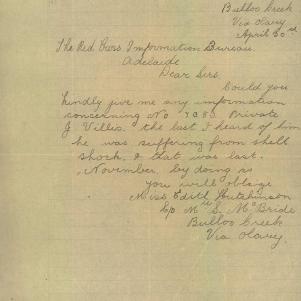 Bulloo Creek
Via Olary
April 30th
The Red Cross Information Bureau
Adelaide
Dear Sirs
Could you
kindly give me any information
concerning No Private
J Villis. the last I heard of him
he was suffering from shell
shock, & that was last.
November, by doing so
you will oblige
Miss Edith Hutchinson
C/o Mrs S. McBride
Bulloo Creek
Via Olary.